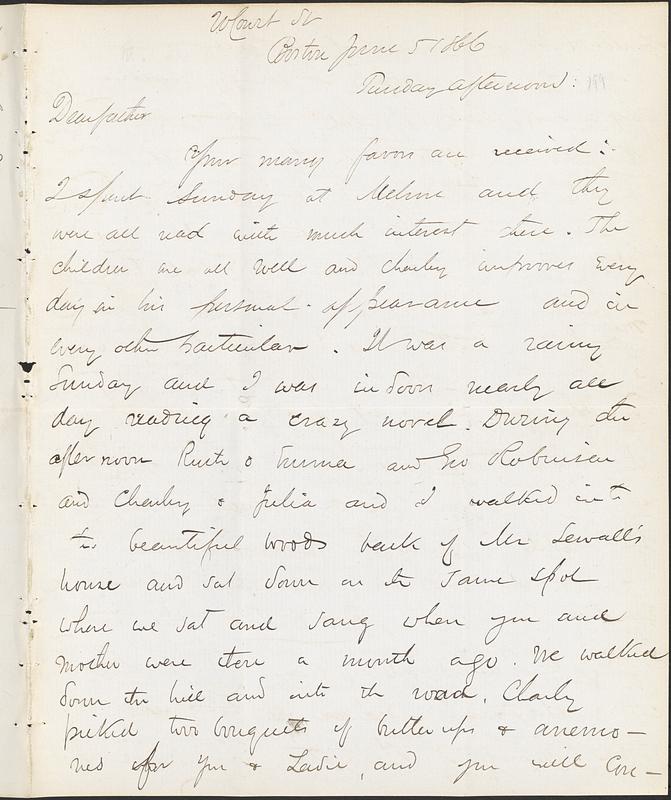 Court St
Boston June 5 1866
Tuesday afternoon:
Dear father
Your many favors are received:
I spent Sunday at Melrose and they
were all read with much interest there. The
children are all well and Charley improves every
day in his personal appearance and in
every other particular. It was a rainy
Sunday and I was in doors nearly all
day reading a crazy novel. During the
afternoon Ruth & Emma and Geo Robinson
and Charley & Julia and I walked into
the beautiful woods back of Mr Sewall's
house and sat down on the same spot
where we sat and sang when you and
mother were there a month ago. We walked
down the hill and into the road. Charley
picked two bouquets of buttercups & anemo-
nes for you & Sadie, and you will con-